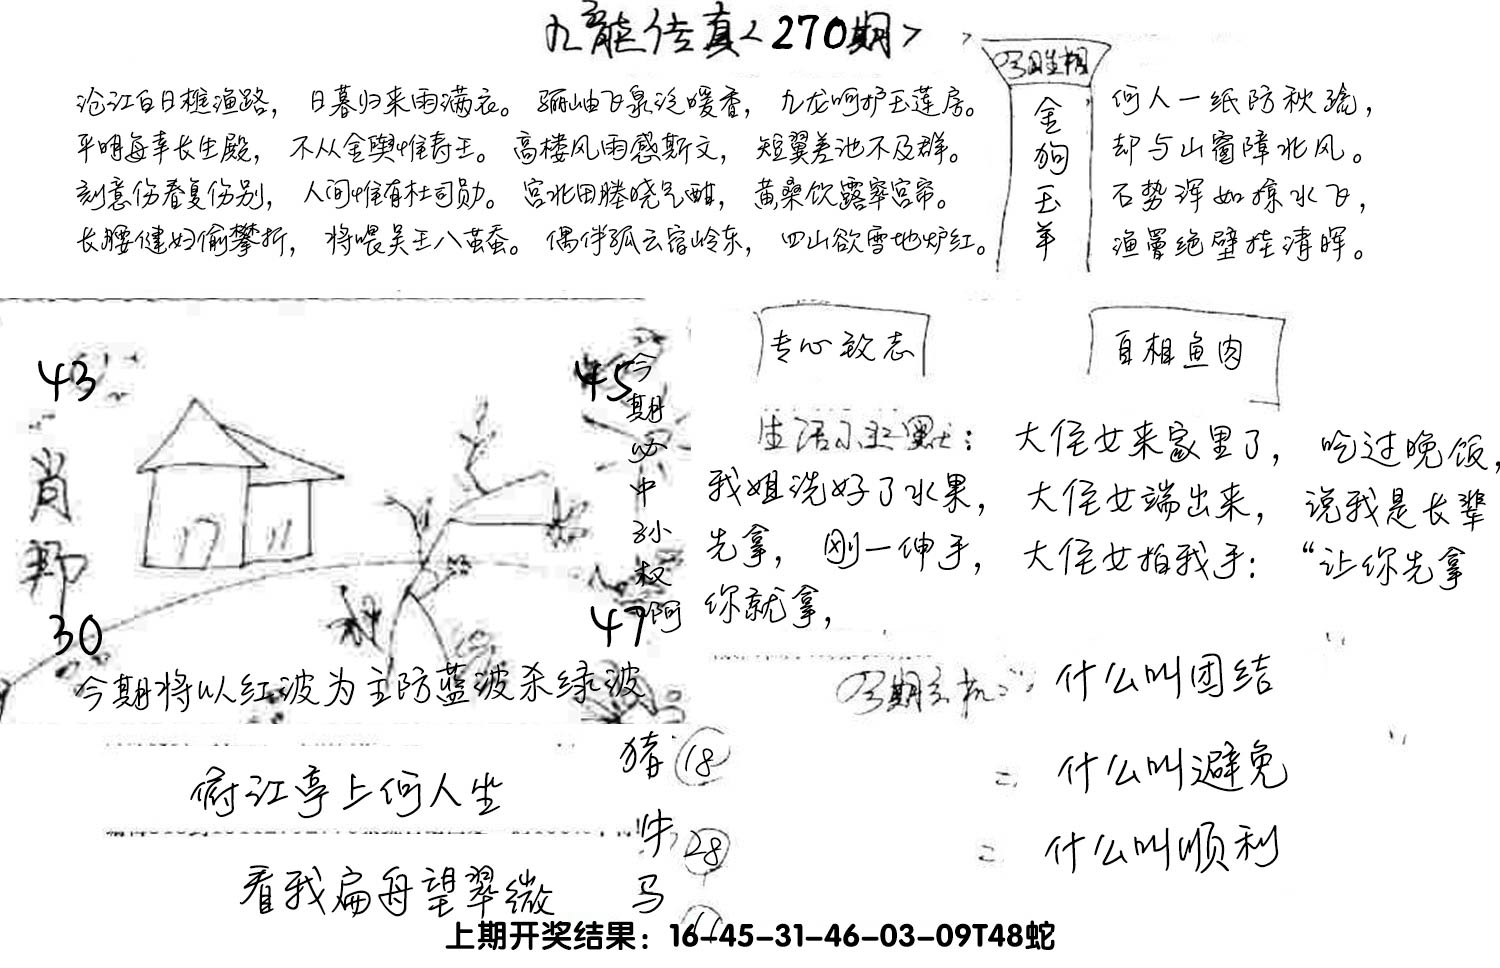 九龍传真<270期>
沧江白日樵渔路，日暮归来雨满衣。骊岫飞泉泛暖香，九龙呵护玉莲房。
平明每幸长生殿，不从金舆惟寿王。高楼风雨感斯文，短翼差池不及群。
刻意伤春复伤别，人间惟有杜司勋。宫北田塍晓气酣，黄桑饮露窣宫帘。
长腰健妇偷攀折，将喂吴王八茧蚕。偶伴孤云宿岭东，四山欲雪地炉红。
今期生相
金狗玉羊
何人一纸防秋疏，
却与山窗障北风。
石势浑如掠水飞，
渔罾绝壁挂清晖。
43
45
肖
30
47
今期必中孙权阿
今期将以红波为主防蓝波杀绿波
专心致志
自相鱼肉
生活小幽默：大侄女来家里了，吃过晚饭，
我姐洗好了水果，大侄女端出来，说我是长辈
先拿，刚一伸手，大侄女拍我手：“让你先拿
你就拿，
今期玄机：什么叫团结
= 什么叫避免
= 什么叫顺利
俯江亭上何人坐
看我扁舟望翠微
猪 18
牛 28
马
上期开奖结果：16-45-31-46-03-09T48蛇